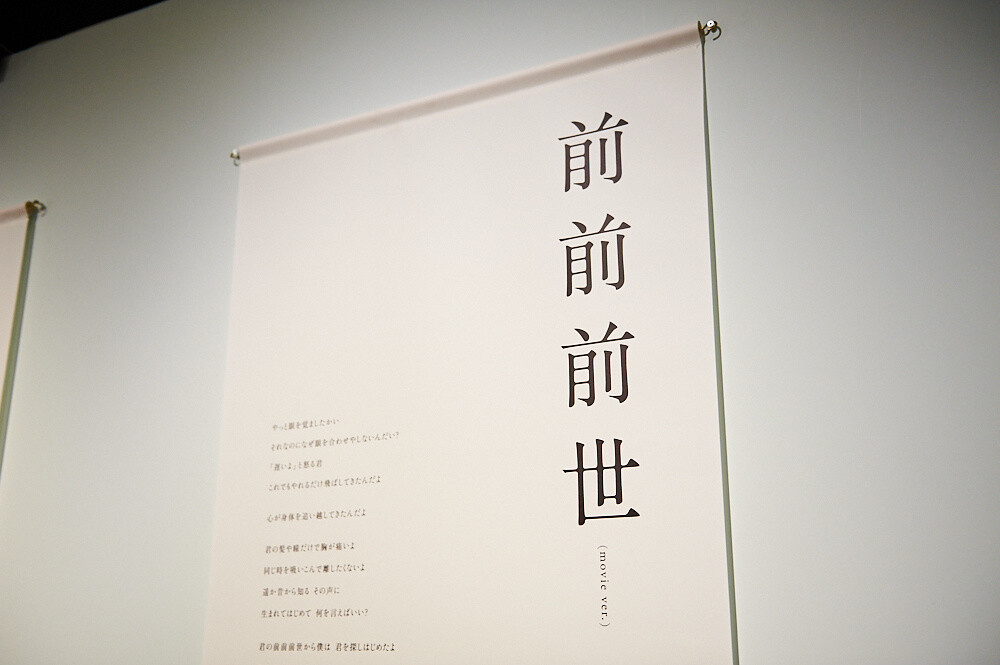 前前前世
(movie ver.)
やっと眼を覚ましたかい
それなのになぜ眼を合わせやしないんだい?
「遅いよ」と怒る君
これでもやれるだけ飛ばしてきたんだよ
心が身体を追い越してきたんだよ
君の髪や瞳だけで胸が痛いよ
同じ時を吸いこんで離したくないよ
遥か昔から知る その声に
生まれてはじめて 何を言えばいい?
君の前前前世から僕は 君を探しはじめたよ